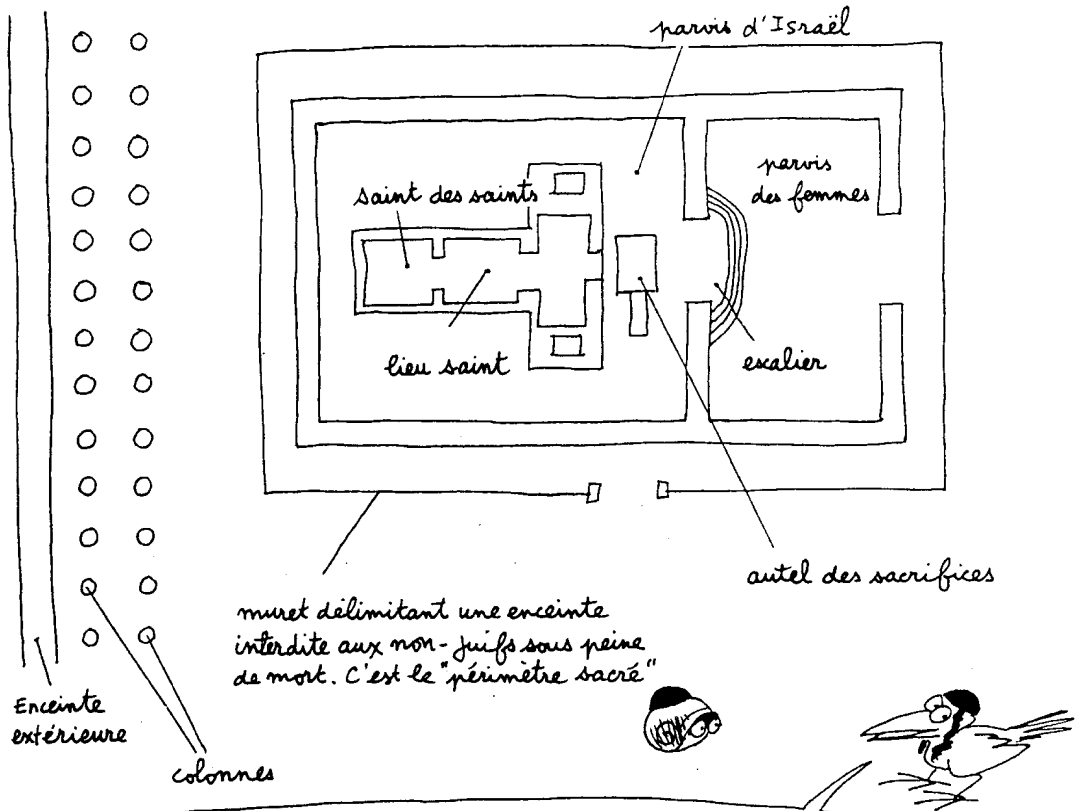 parvis d'Israël
parvis
des femmes
saint des saints
lieu saint
escalier
autel des sacrifices
muret délimitant une enceinte
interdite aux non-Juifs sous peine
de mort. C'est le "périmètre sacré"
Enceinte
extérieure
colonnes